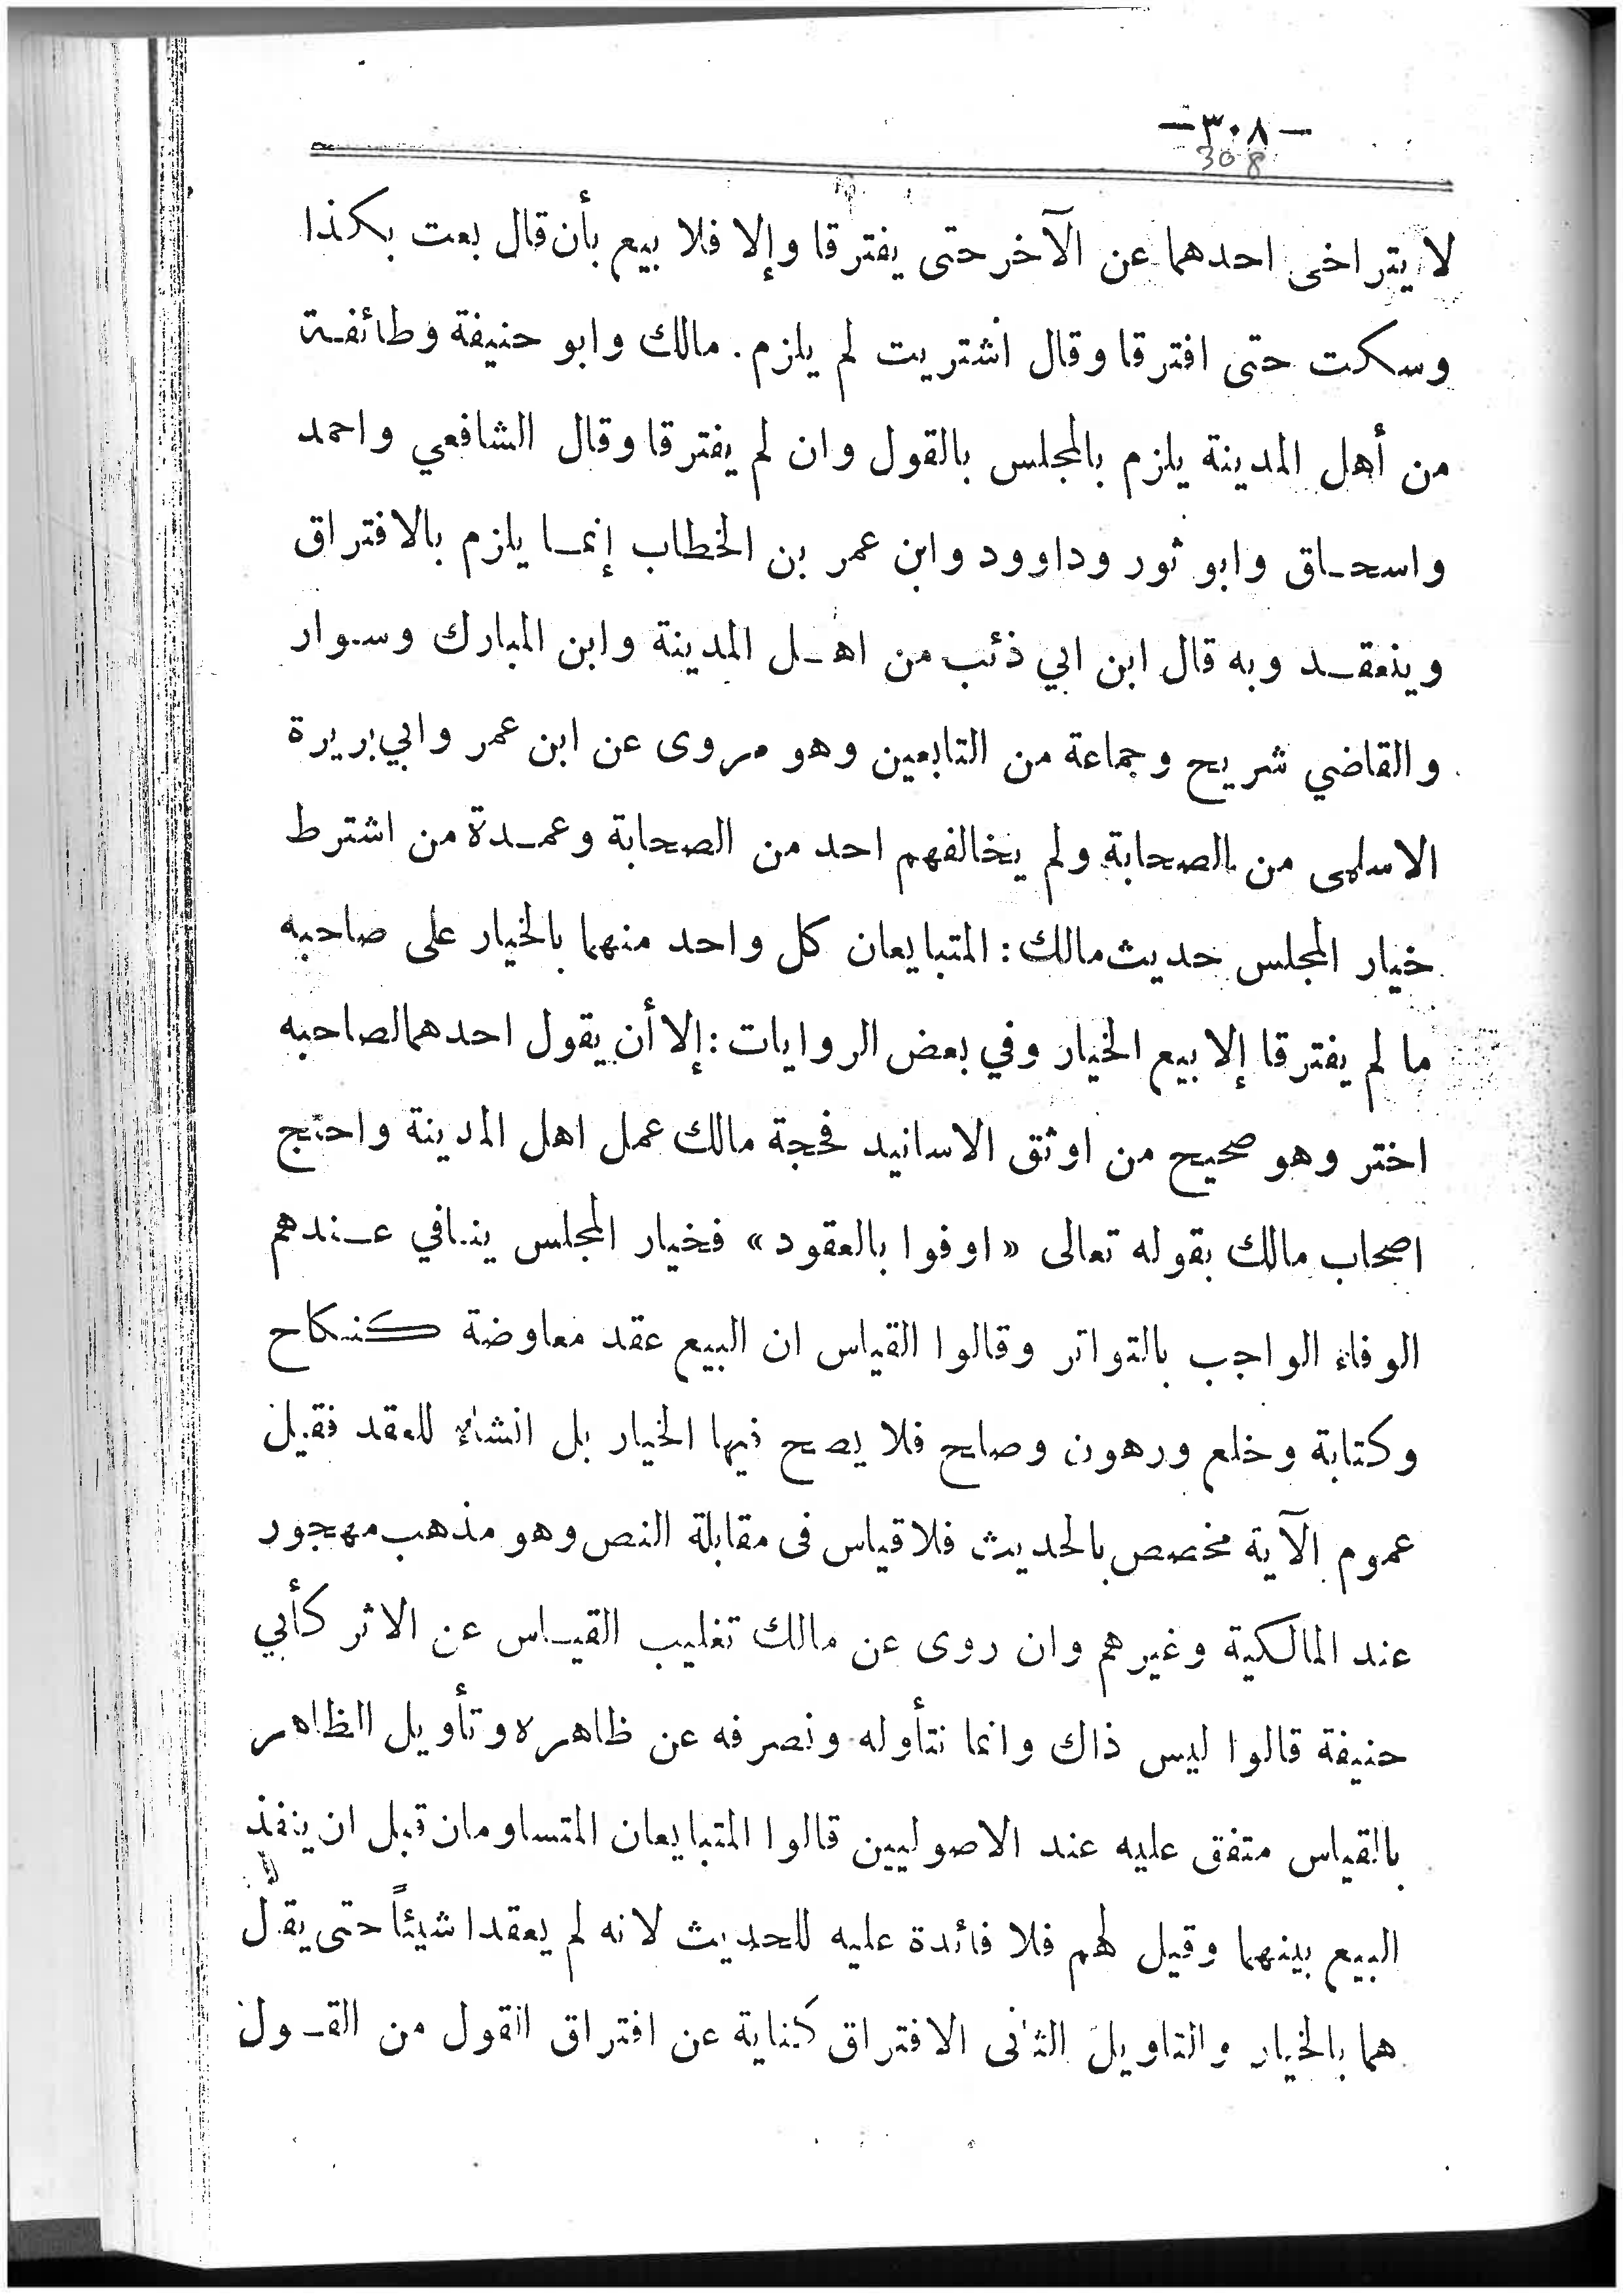 -٣٠٨-
308
لا يتراخى احدهما عن الآخر حتى يفترقا وإلا فلا بيع بأن قال بعت بكذا
وسكت حتى افترقا وقال اشتريت لم يلزم. مالك وابو حنيفة وطائفة
من أهل المدينة يلزم بالمجلس بالقول وان لم يفترقا وقال الشافعي واحمد
واسحاق وابو ثور وداوود وابن عمر بن الخطاب إنما يلزم بالافتراق
وينعقد وبه قال ابن ابي ذئب من اهل المدينة وابن المبارك وسوار
والقاضي شريح وجماعة من التابعين وهو مروى عن ابن عمر وابي بريرة
الاسلمى من الصحابة ولم يخالفهم احد من الصحابة وعمدة من اشترط
خيار المجلس حديث مالك: المتبايعان كل واحد منهما بالخيار على صاحبه
ما لم يفترقا إلا بيع الخيار وفي بعض الروايات: إلا أن يقول احدهما لصاحبه
اختر وهو صحيح من اوثق الاسانيد فحجة مالك عمل اهل المدينة واحتج
اصحاب مالك بقوله تعالى «اوفوا بالعقود» فخيار المجلس ينافي عندهم
الوفاء الواجب بالتواتر وقالوا القياس ان البيع عقد معاوضة كنكاح
وكتابة وخلع ورهون وصلح فلا يصح فيها الخيار بل انشاء للعقد فقيل
عموم الآية مخصص بالحديث فلا قياس فى مقابلة النص وهو مذهب مهجور
عند المالكية وغيرهم وان روى عن مالك تغليب القياس عن الاثر كأبي
حنيفة قالوا ليس ذاك وانما نتأوله ونصرفه عن ظاهره وتأويل الظاهر
بالقياس متفق عليه عند الاصوليين قالوا المتبايعان المتساومان قبل ان ينفذ
البيع بينهما وقيل لهم فلا فائدة عليه للحديث لانه لم يعقدا شيئاً حتى يقال
هما بالخيار والتاويل الثانى الافتراق كناية عن افتراق القول من القول